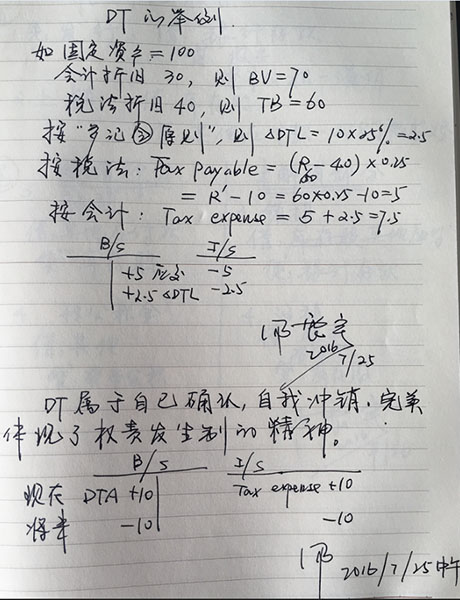 DT的举例
如固定资产=100
会计折旧 30, 则 BV=70
税法折旧 40, 则 TB=60
按"书记②原则", 则 ΔDTL=10×25%=2.5
按税法: Tax payable = (R-40)×0.25
60
= R'-10=60×0.25-10=5
按会计: Tax expense = 5+2.5=7.5
B/S I/S
+5 应交 -5
+2.5 ΔDTL -2.5
2016
7/25
DT属于自己确认,自我冲销,完美
体现了权责发生制的精神。
B/S I/S
现在 DTA +10 Tax expense +10
将来 -10 -10
2016/7/25 中午